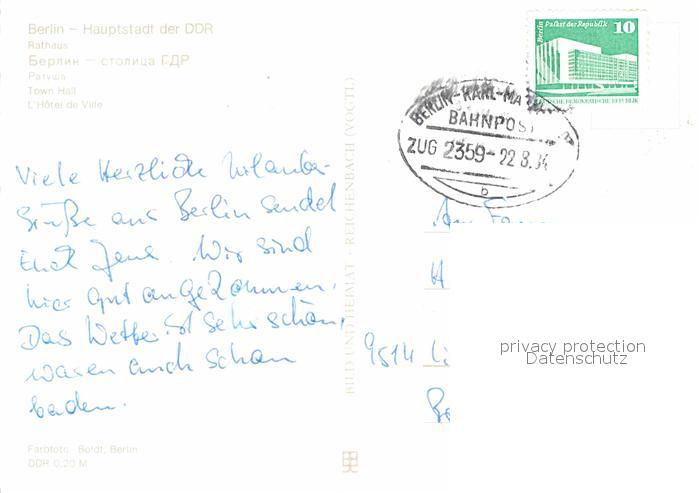 Berlin – Hauptstadt der DDR
Rathaus
Берлин – столица ГДР
Ратуша
Town Hall
L'Hôtel de Ville
Viele Herzliche Urlaubs-
grüße aus Berlin sendet
Euch Jens. Wir sind
hier gut angekommen.
Das Wetter ist sehr schön,
waren auch schon
baden.
Farbfoto: Boldt, Berlin
DDR 0,20 M
BILD UND HEIMAT · REICHENBACH (VOGTL)
Berlin Palast der Republik 10
DEUTSCHE DEMOKRATISCHE REPUBLIK
BERLIN-KARL-MA
BAHNPOST
ZUG 2359-22.8.84
b
An Fam
H
9514 Li
privacy protection
Datenschutz